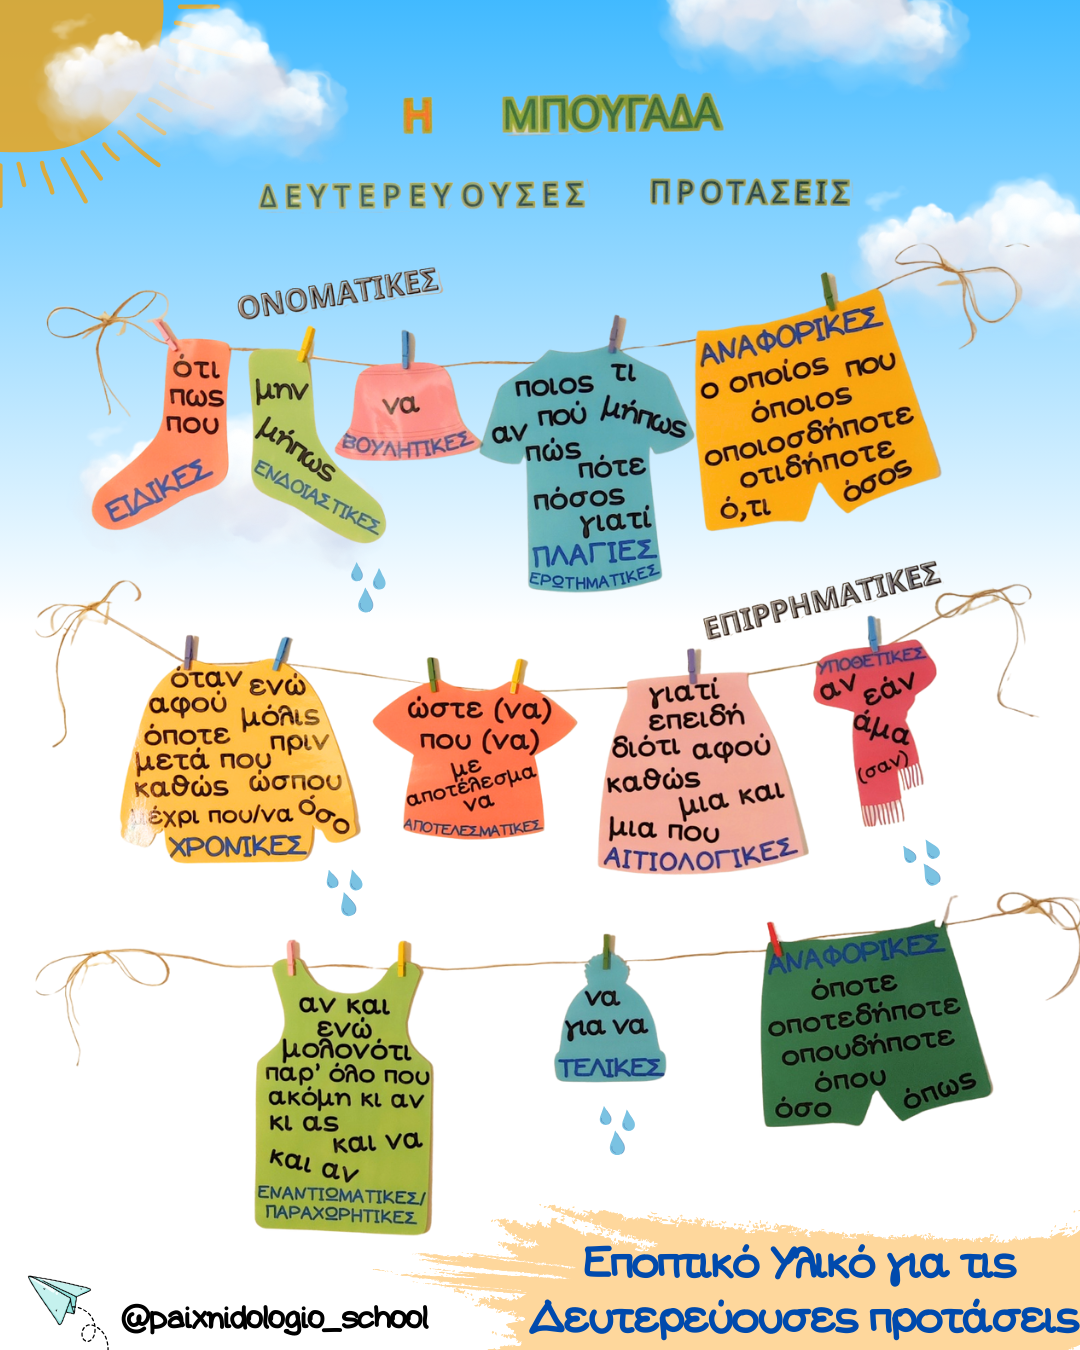 Η ΜΠΟΥΓΑΔΑ
ΔΕΥΤΕΡΕΥΟΥΣΕΣ ΠΡΟΤΑΣΕΙΣ
ΟΝΟΜΑΤΙΚΕΣ
ότι
πως
που
ΕΙΔΙΚΕΣ
μην
μήπως
ΕΝΔΟΙΑΣΤΙΚΕΣ
να
ΒΟΥΛΗΤΙΚΕΣ
ποιος τι
πού μήπως
αν πώς
πότε
πόσος
γιατί
ΠΛΑΓΙΕΣ
ΕΡΩΤΗΜΑΤΙΚΕΣ
ΑΝΑΦΟΡΙΚΕΣ
ο οποίος που
όποιος
οποιοσδήποτε
οτιδήποτε
ό,τι όσος
ΕΠΙΡΡΗΜΑΤΙΚΕΣ
όταν ενώ
αφού μόλις
όποτε πριν
μετά που
καθώς ώσπου
μέχρι που/να όσο
ΧΡΟΝΙΚΕΣ
ώστε (να)
που (να)
με
αποτέλεσμα
να
ΑΠΟΤΕΛΕΣΜΑΤΙΚΕΣ
γιατί
επειδή
διότι αφού
καθώς
μια και
μια που
ΑΙΤΙΟΛΟΓΙΚΕΣ
ΥΠΟΘΕΤΙΚΕΣ
αν εάν
άμα
(σαν)
αν και
ενώ
μολονότι
παρ' όλο που
ακόμη κι αν
κι ας
και να
και αν
ΕΝΑΝΤΙΩΜΑΤΙΚΕΣ/
ΠΑΡΑΧΩΡΗΤΙΚΕΣ
να
για να
ΤΕΛΙΚΕΣ
ΑΝΑΦΟΡΙΚΕΣ
όποτε
οποτεδήποτε
οπουδήποτε
όπου
όσο όπως
Εποπτικό Υλικό για τις
Δευτερεύουσες προτάσεις
@paixnidologio_school